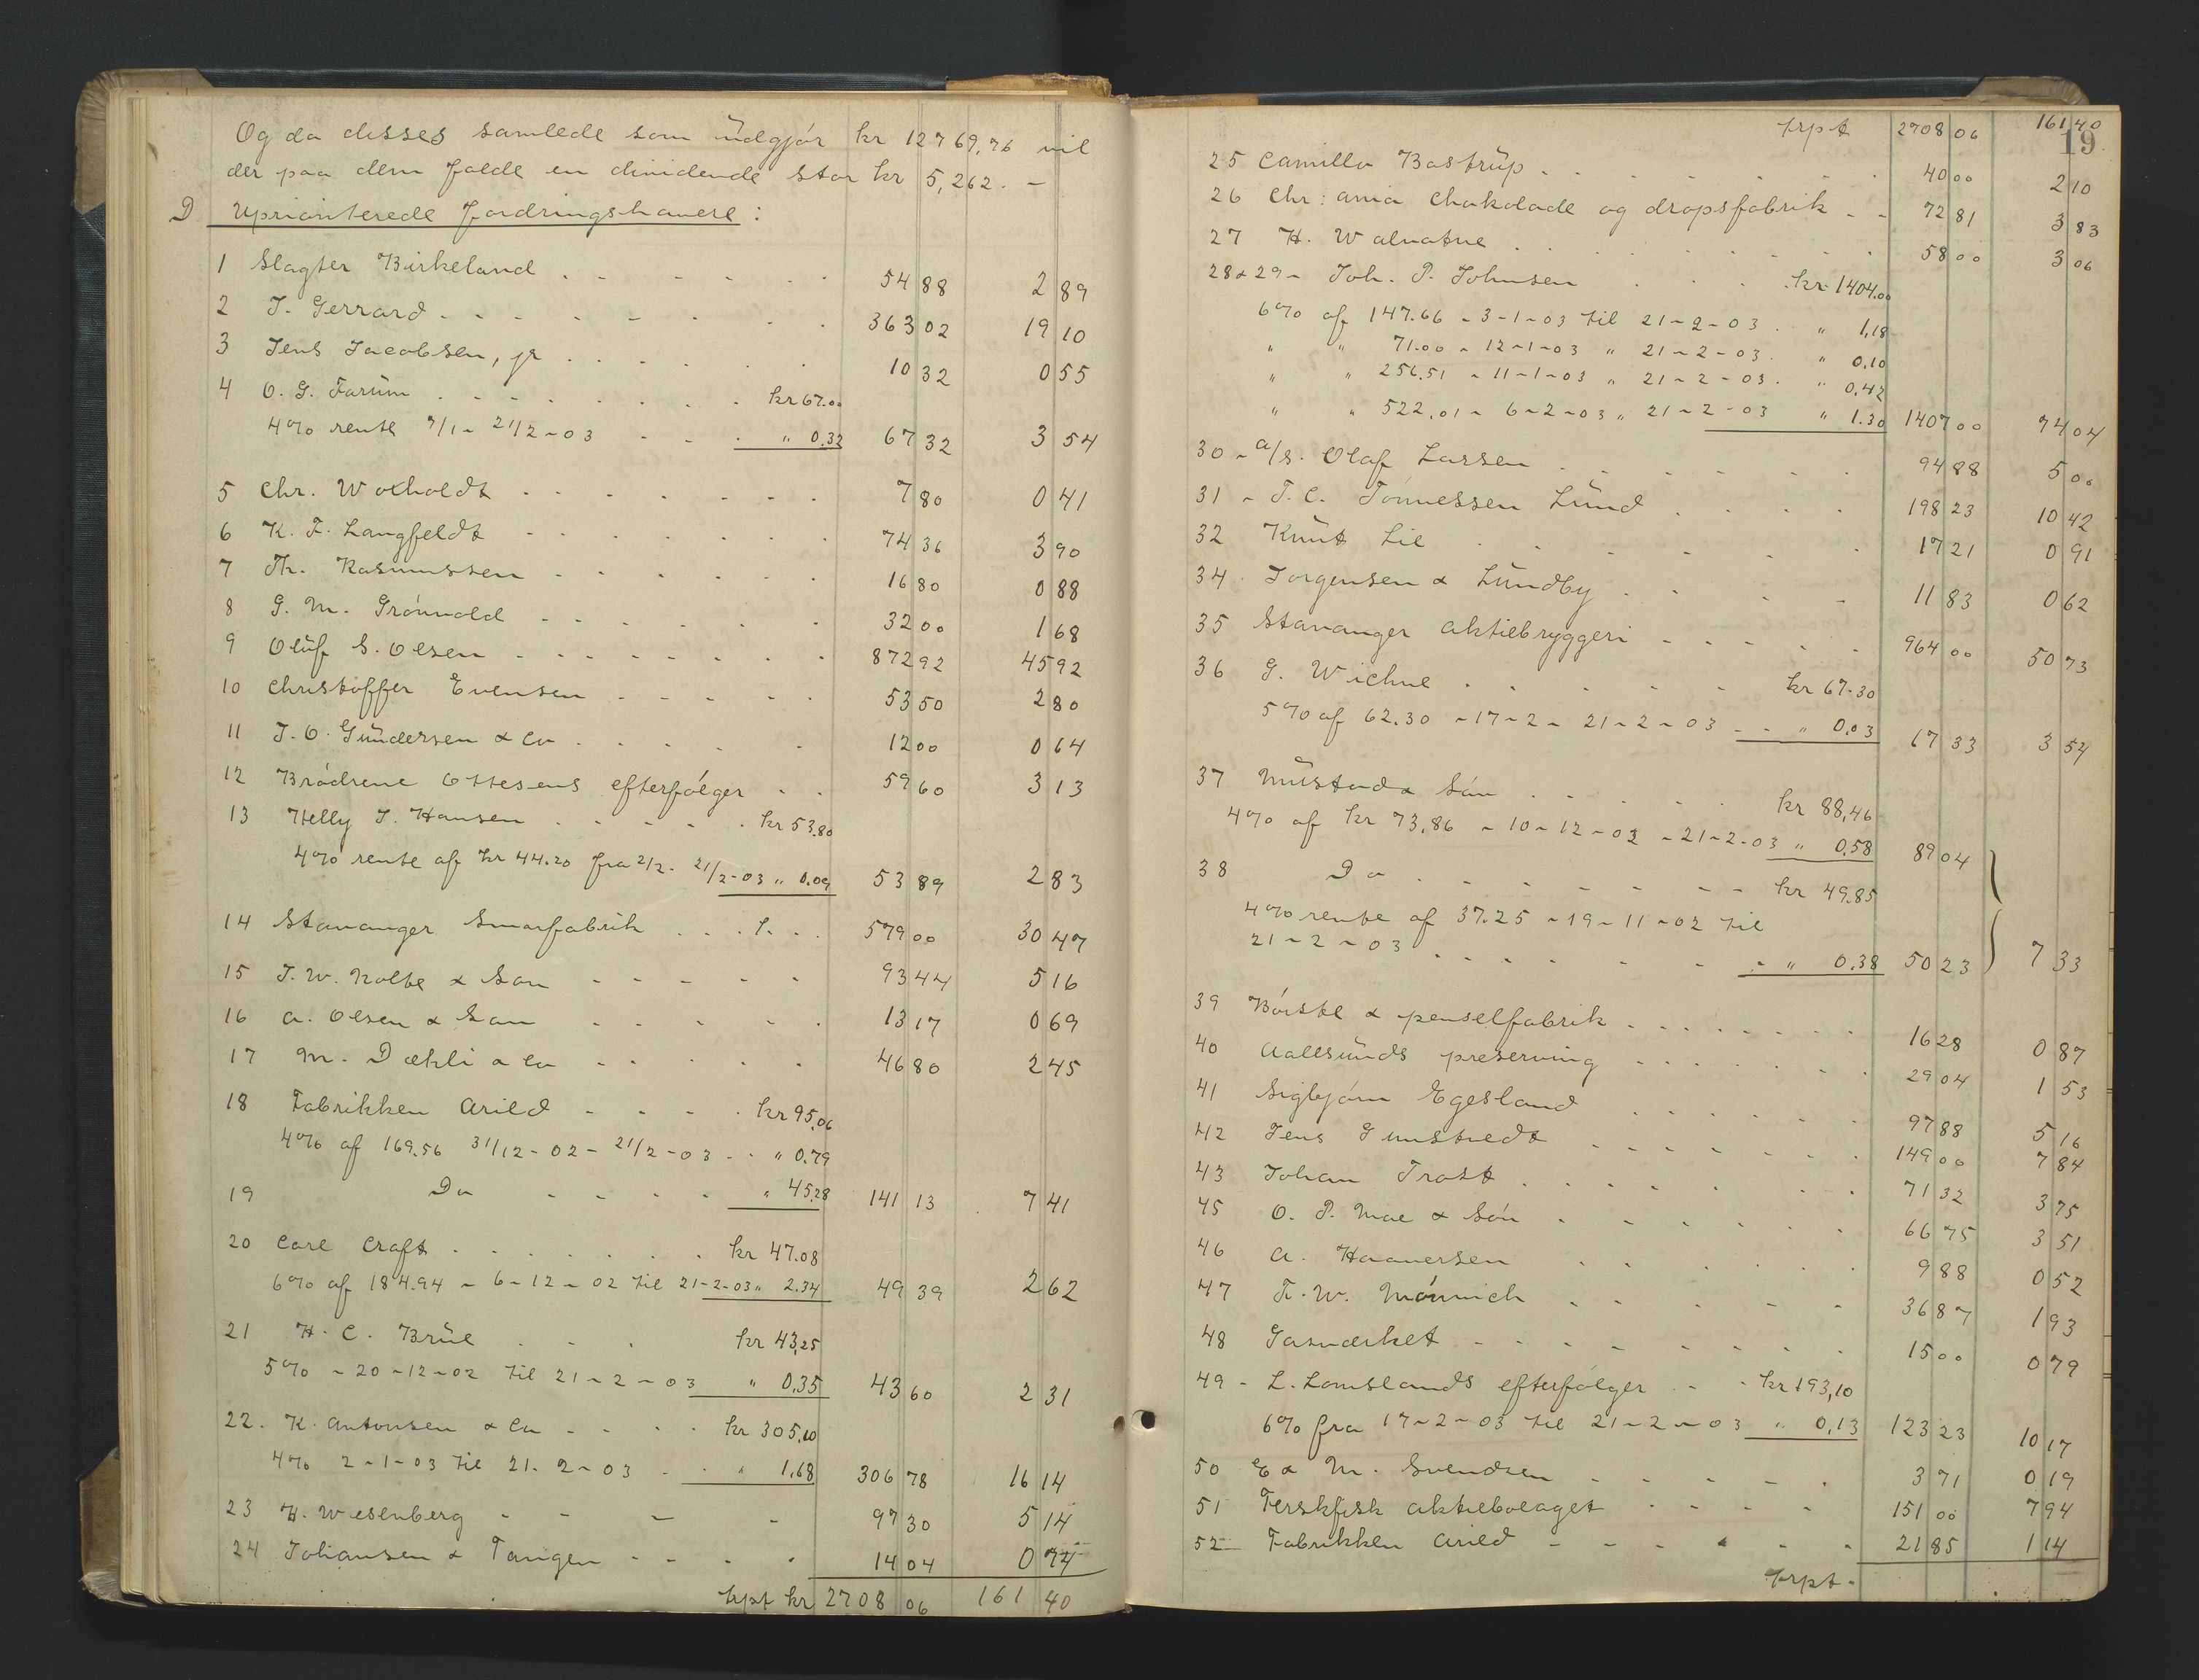 Og da disses samlede sum üdgjør kr 12769,76 vil
der paa dem falde en dividende stor kr 5,262.-
D Uprioriterede fordringshavere:
1 Slagter Birkeland 54 88 2 89
2 J. Gerrard 363 02 19 10
3 Jens Jacobsen, jr 10 32 0 55
4 O. G. Farüm kr 67.00
4% rente 7/1 - 21/2-03 " 0.32 67 32 3 54
5 Chr. Woxholdt 7 80 0 41
6 K. F. Langfeldt 74 36 3 90
7 Th. Rasmussen 16 80 0 88
8 G. M. Grönvold 32 00 1 68
9 Olüf S. Olsen 872 92 45 92
10 Christoffer Evensen 53 50 2 80
11 J. O. Gündersen & Co 12 00 0 64
12 Brödrene Ottesens efterfölger 59 60 3 13
13 Helly J. Hansen kr 53.80
4% rente af kr 44.20 fra 2/2 - 21/2-03 " 0.09 53 89 2 83
14 Stavanger Smørfabrik 579 00 30 47
15 J. W. Nolte & Søn 93 44 5 16
16 A. Olsen & Søn 13 17 0 69
17 M. Dæhli & Co 46 80 2 45
18 Fabrikken Arild kr 95.06
4% af 169.56 31/12-02 - 21/2-03 " 0.79
19 Do " 45.28 141 13 7 41
20 Carl Craft kr 47.08
6% af 184.94 - 6-12-02 til 21-2-03 " 2.34 49 39 2 62
21 H. C. Brüe kr 43,25
5% - 20-12-02 til 21-2-03 " 0,35 43 60 2 31
22. K. Antonsen & Co kr 305,10
4% 2-1-03 til 21-2-03 " 1,68 306 78 16 14
23 H. Wesenberg 97 30 5 14
24 Johansen & Tangen 14 04 0 74
trpt kr 2708 06 161 40
19
trpt 2708 06 161 40
25 Camilla Bastrüp 40 00 2 10
26 Chr:ania Chokolade og dropsfabrik 72 81 3 83
27 H. Walnatne 58 00 3 06
28 & 29 - Joh. P. Johnsen kr. 1404.00
6% af 147.66 - 3-1-03 til 21-2-03 " 1,18
" " 71.00 - 12-1-03 " 21-2-03 " 0.10
" " 256.51 - 11-1-03 " 21-2-03 " 0,42
" " 522.01 - 6-2-03 " 21-2-03 " 1.30 1407 00 74 04
30 - A/S. Olaf Larsen 94 88 5 00
31 - T. C. Tönnessen Lünd 198 23 10 42
32 Knüt Lie 17 21 0 91
34 Jorgensen & Lündby 11 83 0 62
35 Stavanger Aktiebryggeri 964 00 50 73
36 G. Wichne kr 67.30
5% af 62.30 - 17-2 - 21-2-03 " 0.03 67 33 3 54
37 Müstad & Sön kr 88,46
4% af kr 73,86 - 10-12-02 - 21-2-03 " 0.58 89 04
38 Do kr 49.85
4% rente af 37.25 - 19-11-02 til
21-2-03 " 0.38 50 23 7 33
39 Börste & penselfabrik 16 28 0 87
40 Aalesünds preserving 29 04 1 53
41 Sigbjörn Egesland 97 88 5 16
42 Jens Gunstvedt 149 00 7 84
43 Johan Trost 71 32 3 75
45 O. P. Moe & Sön 66 75 3 51
46 A. Haaversen 9 88 0 52
47 Fr. W. Mönnich 36 87 1 93
48 Gasverket 15 00 0 79
49 - L. Lomslands efterfølger kr 193,10
6% fra 17-2-03 til 21-2-03 " 0,13 123 23 10 17
50 E & M. Svendsen 3 71 0 19
51 Ferskfisk aktiebolaget 151 00 7 94
52 Fabrikken Arild 21 85 1 14
trpt.